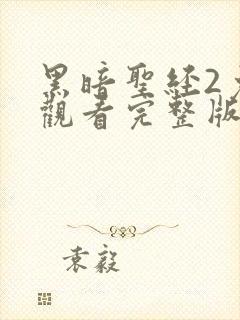 黑暗聖経2
觀看完整版
袁毅